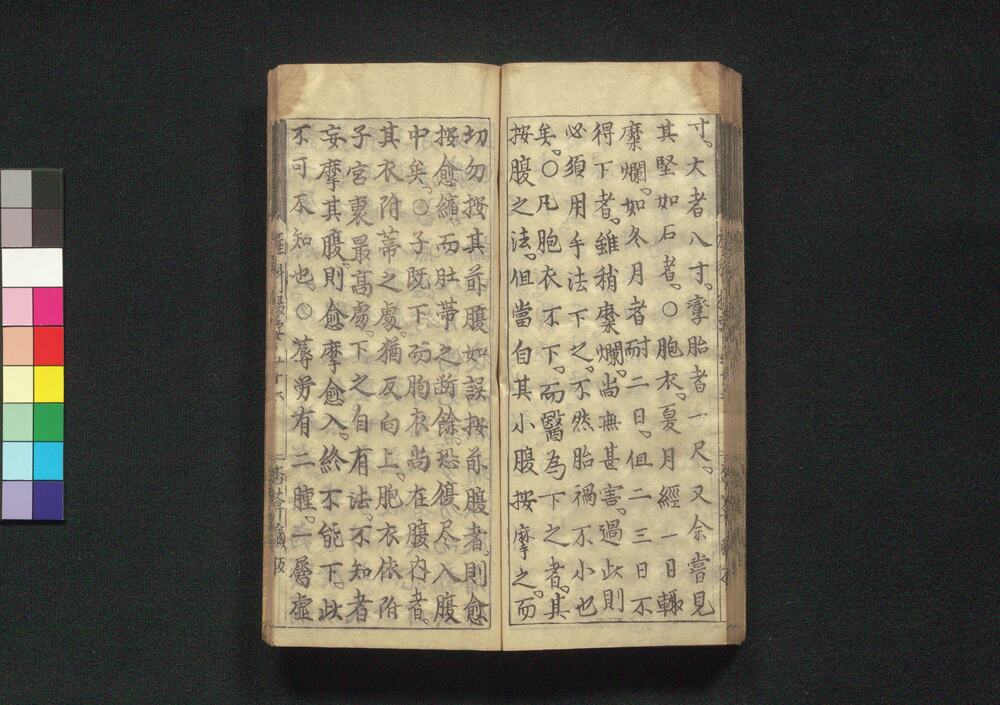 寸。大者八寸。孿胎者一尺。又余嘗見
其堅如石者。○胞衣。夏月經一日輙
糜爛。如冬月者耐二日。但二三日不
得下者。雖稍糜爛。尚無甚害。過此則
必須用手法下之。不然胎禍不小也
矣。○凡胞衣不下。而醫為下之者。其
按腹之法。但當自其小腹按摩之。而
切勿按其前腹如誤按前腹者。則愈
按愈縮。而肚帶之断餘。恐復尽入腹
中矣。○子既下而胞衣尚在腹内者。
其衣附蒂之處。猶反向上。胞衣依附
子宮裏最高處。下之自有法。不知者
妄摩其腹。則愈摩愈入。終不能下。此
不可不知也。○蓐勞有二腫。一屬虛